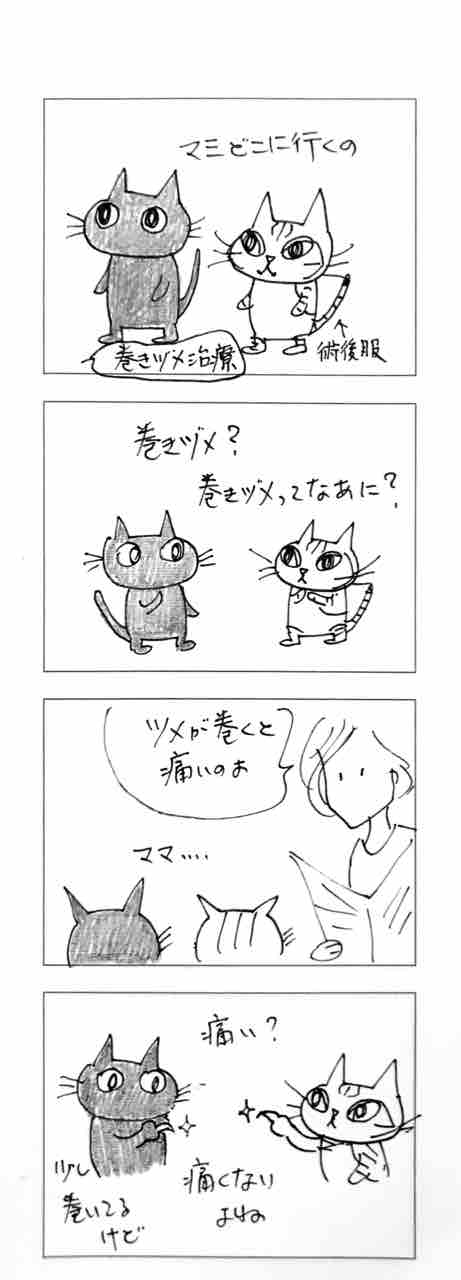 マミどこに行くの
巻きヅメ治療
↑
術後服
巻きヅメ?
巻きヅメってなあに?
ツメが巻くと
痛いのよ
ママ....
痛い?
少し
巻いてる
けど
痛くない
よね